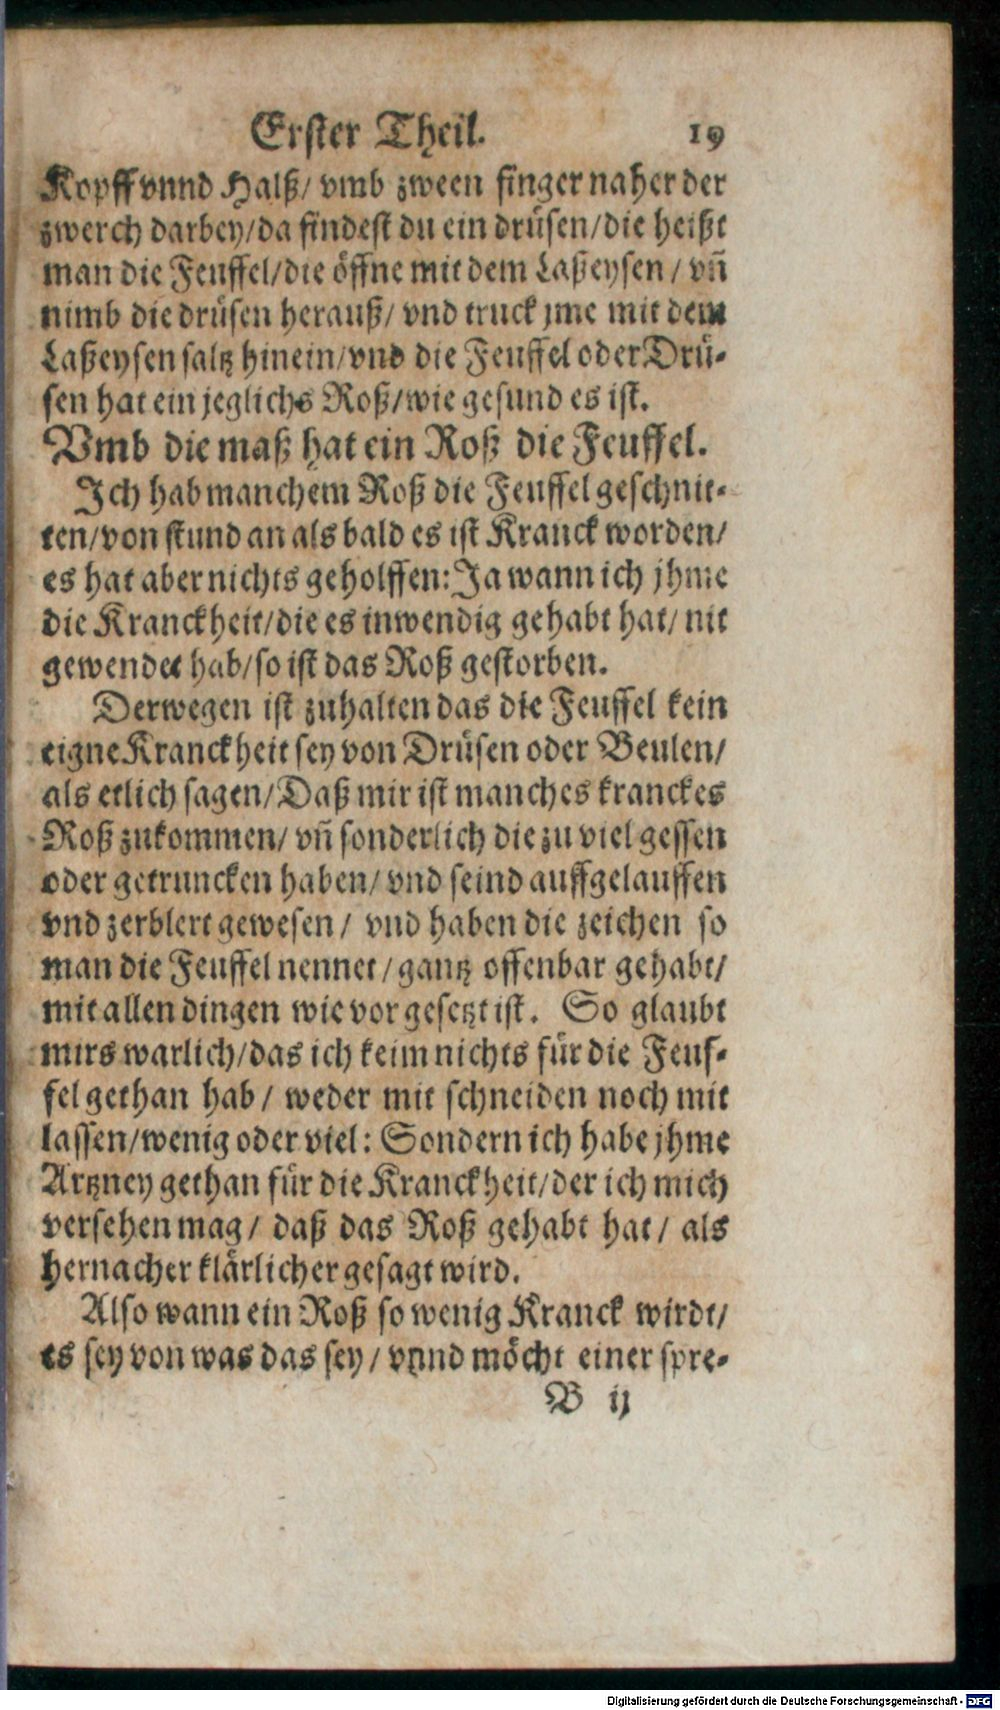 Erster Theil. 19
Kopff vnnd Halß/ vmb zween finger naher der
zwerch darbey/da findest du ein drüsen/die heißt
man die Feuffel/die öffne mit dem Laßeysen/ vñ
nimb die drüsen herauß/ vnd truck jme mit dem
Laßeysen saltz hinein/vnd die Feuffel oder Drü-
sen hat ein jeglichs Roß/wie gesund es ist.
Vmb die maß hat ein Roß die Feuffel.
Ich hab manchem Roß die Feuffel geschnit-
ten/von stund an als bald es ist Kranck worden/
es hat aber nichts geholffen: Ja wann ich jhme
die Kranckheit/die es inwendig gehabt hat/ nit
gewendet hab/so ist das Roß gestorben.
Derwegen ist zuhalten das die Feuffel kein
eigne Kranckheit sey von Drüsen oder Beulen/
als etlich sagen/Daß mir ist manches kranckes
Roß zukommen/ vñ sonderlich die zu viel gessen
oder getruncken haben/ vnd seind auffgelauffen
vnd zerblert gewesen/ vnd haben die zeichen so
man die Feuffel nennet/gantz offenbar gehabt/
mit allen dingen wie vor gesetzt ist. So glaubt
mirs warlich/das ich keim nichts für die Feuf-
fel gethan hab/ weder mit schneiden noch mit
lassen/wenig oder viel: Sondern ich habe jhme
Artzney gethan für die Kranckheit/der ich mich
versehen mag/ daß das Roß gehabt hat/ als
hernacher klärlicher gesagt wird.
Also wann ein Roß so wenig Kranck wirdt/
es sey von was das sey/ vnnd möcht einer spre-
B ij
Digitalisierung gefördert durch die Deutsche Forschungsgemeinschaft - DFG